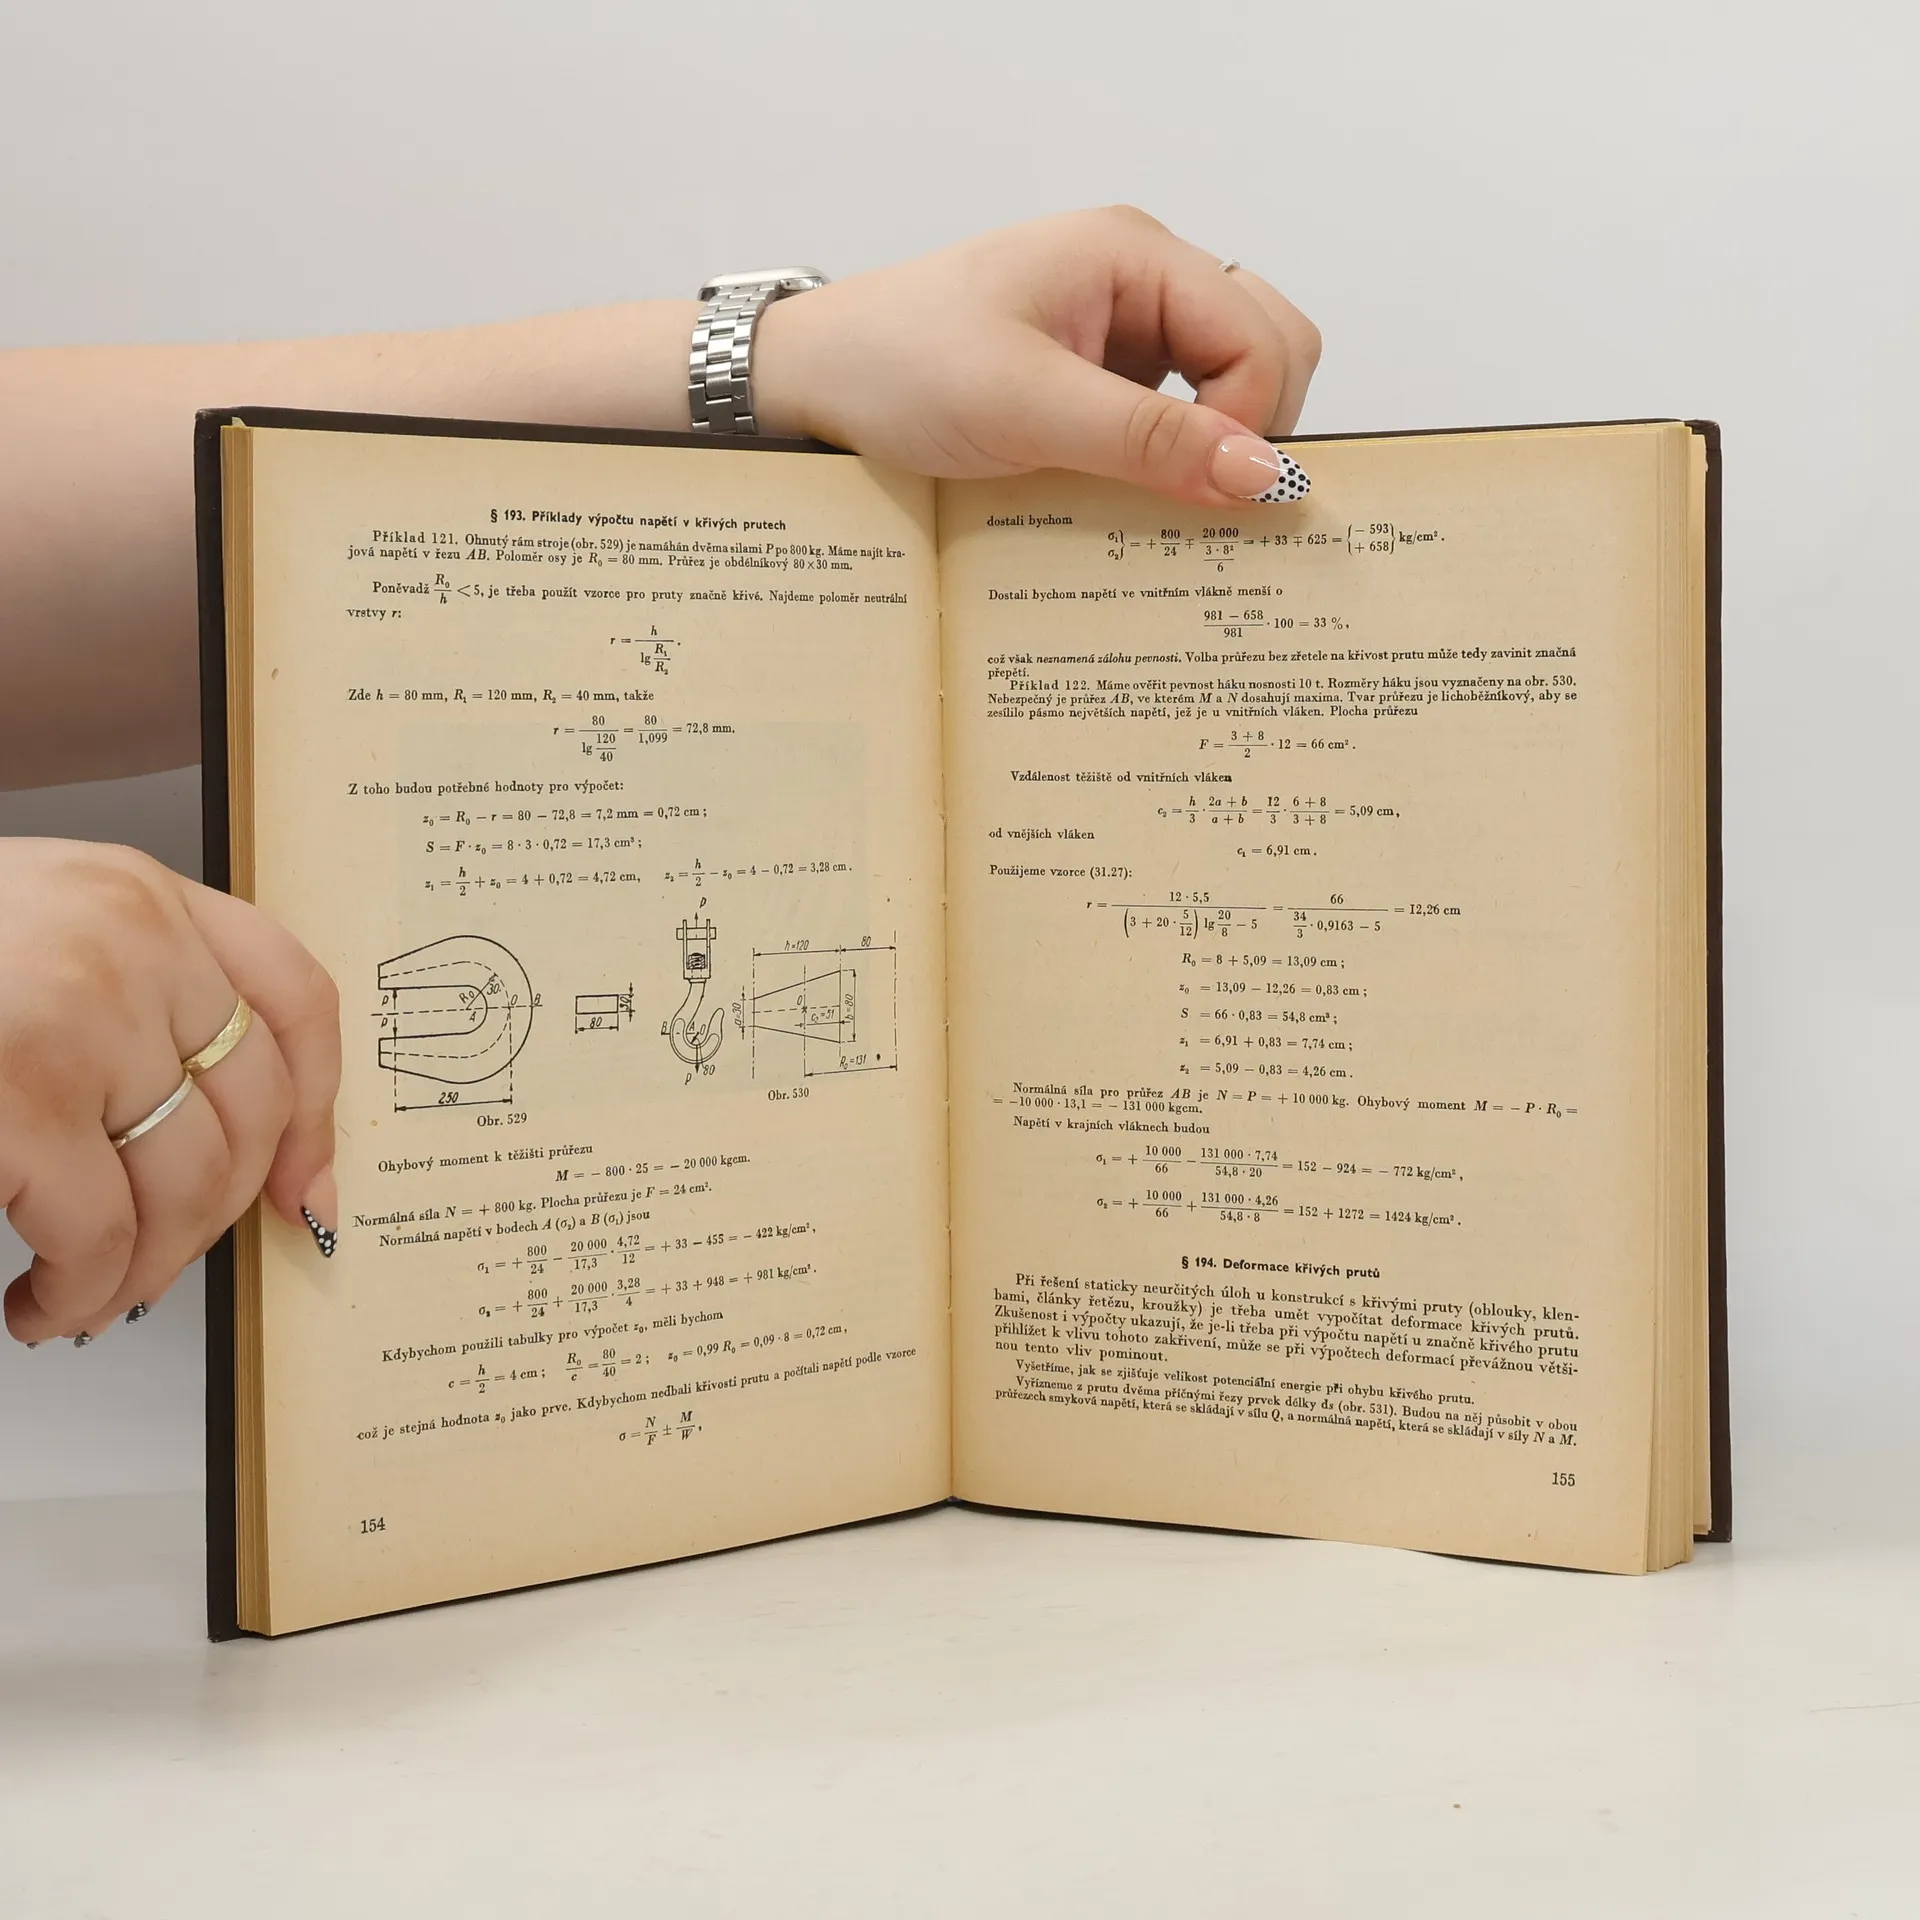 § 193. Příklady výpočtu napětí v křivých prutech
Příklad 121. Ohnutý rám stroje (obr. 529) je namáhán dvěma silami P po 800 kg. Máme najít kra-
jová napětí v řezu AB. Poloměr osy je R₀ = 80 mm. Průřez je obdélníkový 80×30 mm.
Poněvadž R₀/h < 5, je třeba použít vzorce pro pruty značně křivé. Najdeme poloměr neutrální
vrstvy r:
r = h / (lg R₁/R₂) .
Zde h = 80 mm, R₁ = 120 mm, R₂ = 40 mm, takže
r = 80 / (lg 120/40) = 80/1,099 = 72,8 mm.
Z toho budou potřebné hodnoty pro výpočet:
z₀ = R₀ − r = 80 − 72,8 = 7,2 mm = 0,72 cm ;
S = F · z₀ = 8 · 3 · 0,72 = 17,3 cm³ ;
z₁ = h/2 + z₀ = 4 + 0,72 = 4,72 cm, z₂ = h/2 − z₀ = 4 − 0,72 = 3,28 cm .
P
P
R₀
30
A
O
B
250
80
30
Obr. 529
P
B
A
O
80
P
h=120
80
a=30
O
c₂=51
b=80
R₀=131
Obr. 530
Ohybový moment k těžišti průřezu
M = − 800 · 25 = − 20 000 kgcm.
Normálná síla N = + 800 kg. Plocha průřezu je F = 24 cm².
Normálná napětí v bodech A (σ₂) a B (σ₁) jsou
σ₁ = + 800/24 − 20 000/17,3 · 4,72/12 = + 33 − 455 = − 422 kg/cm² ,
σ₂ = + 800/24 + 20 000/17,3 · 3,28/4 = + 33 + 948 = + 981 kg/cm² .
Kdybychom použili tabulky pro výpočet z₀, měli bychom
c = h/2 = 4 cm ; R₀/c = 80/40 = 2 ; z₀ = 0,99 R₀ = 0,09 · 8 = 0,72 cm ,
což je stejná hodnota z₀ jako prve. Kdybychom nedbali křivosti prutu a počítali napětí podle vzorce
σ = N/F ± M/W ,
154
dostali bychom
σ₁ σ₂ } = + 800/24 ∓ 20 000 / (3 · 8²/6) = + 33 ∓ 625 = { − 593 + 658 } kg/cm² .
Dostali bychom napětí ve vnitřním vlákně menší o
(981 − 658)/981 · 100 = 33 %,
což však neznamená zálohu pevnosti. Volba průřezu bez zřetele na křivost prutu může tedy zavinit značná
přepětí.
Příklad 122. Máme ověřit pevnost háku nosnosti 10 t. Rozměry háku jsou vyznačeny na obr. 530.
Nebezpečný je průřez AB, ve kterém M a N dosahují maxima. Tvar průřezu je lichoběžníkový, aby se
zesílilo pásmo největších napětí, jež je u vnitřních vláken. Plocha průřezu
F = (3 + 8)/2 · 12 = 66 cm² .
Vzdálenost těžiště od vnitřních vláken
c₂ = h/3 · (2a + b)/(a + b) = 12/3 · (6 + 8)/(3 + 8) = 5,09 cm,
od vnějších vláken
c₁ = 6,91 cm .
Použijeme vzorce (31.27):
r = 12 · 5,5 / ((3 + 20 · 5/12) lg 20/8 − 5) = 66 / (34/3 · 0,9163 − 5) = 12,26 cm
R₀ = 8 + 5,09 = 13,09 cm ;
z₀ = 13,09 − 12,26 = 0,83 cm ;
S = 66 · 0,83 = 54,8 cm³ ;
z₁ = 6,91 + 0,83 = 7,74 cm ;
z₂ = 5,09 − 0,83 = 4,26 cm .
Normálná síla pro průřez AB je N = P = + 10 000 kg. Ohybový moment M = − P · R₀ =
= −10 000 · 13,1 = − 131 000 kgcm.
Napětí v krajních vláknech budou
σ₁ = + 10 000/66 − (131 000 · 7,74)/(54,8 · 20) = 152 − 924 = − 772 kg/cm² ,
σ₂ = + 10 000/66 + (131 000 · 4,26)/(54,8 · 8) = 152 + 1272 = 1424 kg/cm² .
§ 194. Deformace křivých prutů
Při řešení staticky neurčitých úloh u konstrukcí s křivými pruty (oblouky, klen-
bami, články řetězu, kroužky) je třeba umět vypočítat deformace křivých prutů.
Zkušenost i výpočty ukazují, že je-li třeba při výpočtu napětí u značně křivého prutu
přihlížet k vlivu tohoto zakřivení, může se při výpočtech deformací převážnou větši-
nou tento vliv pominout.
Vyšetříme, jak se zjišťuje velikost potenciální energie při ohybu křivého prutu.
Vyřízneme z prutu dvěma příčnými řezy prvek délky ds (obr. 531). Budou na něj působit v obou
průřezech smyková napětí, která se skládají v sílu Q, a normálná napětí, která se skládají v síly N a M.
155